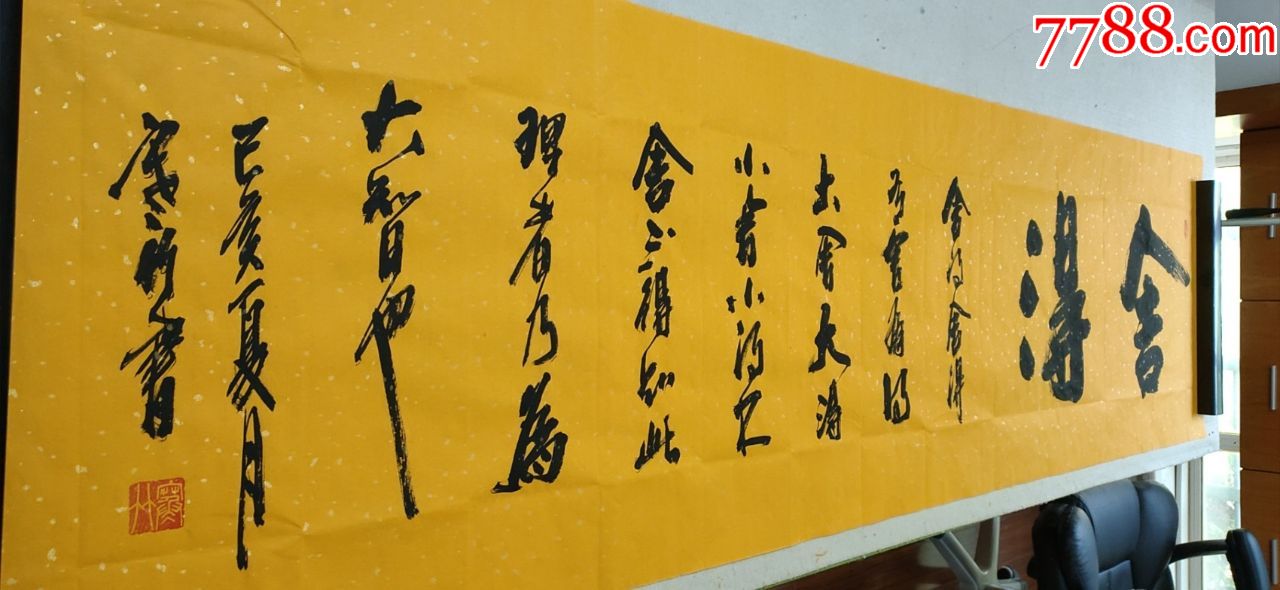 舍
得
舍得舍得
有舍有得
大舍大得
小舍小得不
舍不得知此
理者乃為
大智也
己亥夏月
書
7788.com